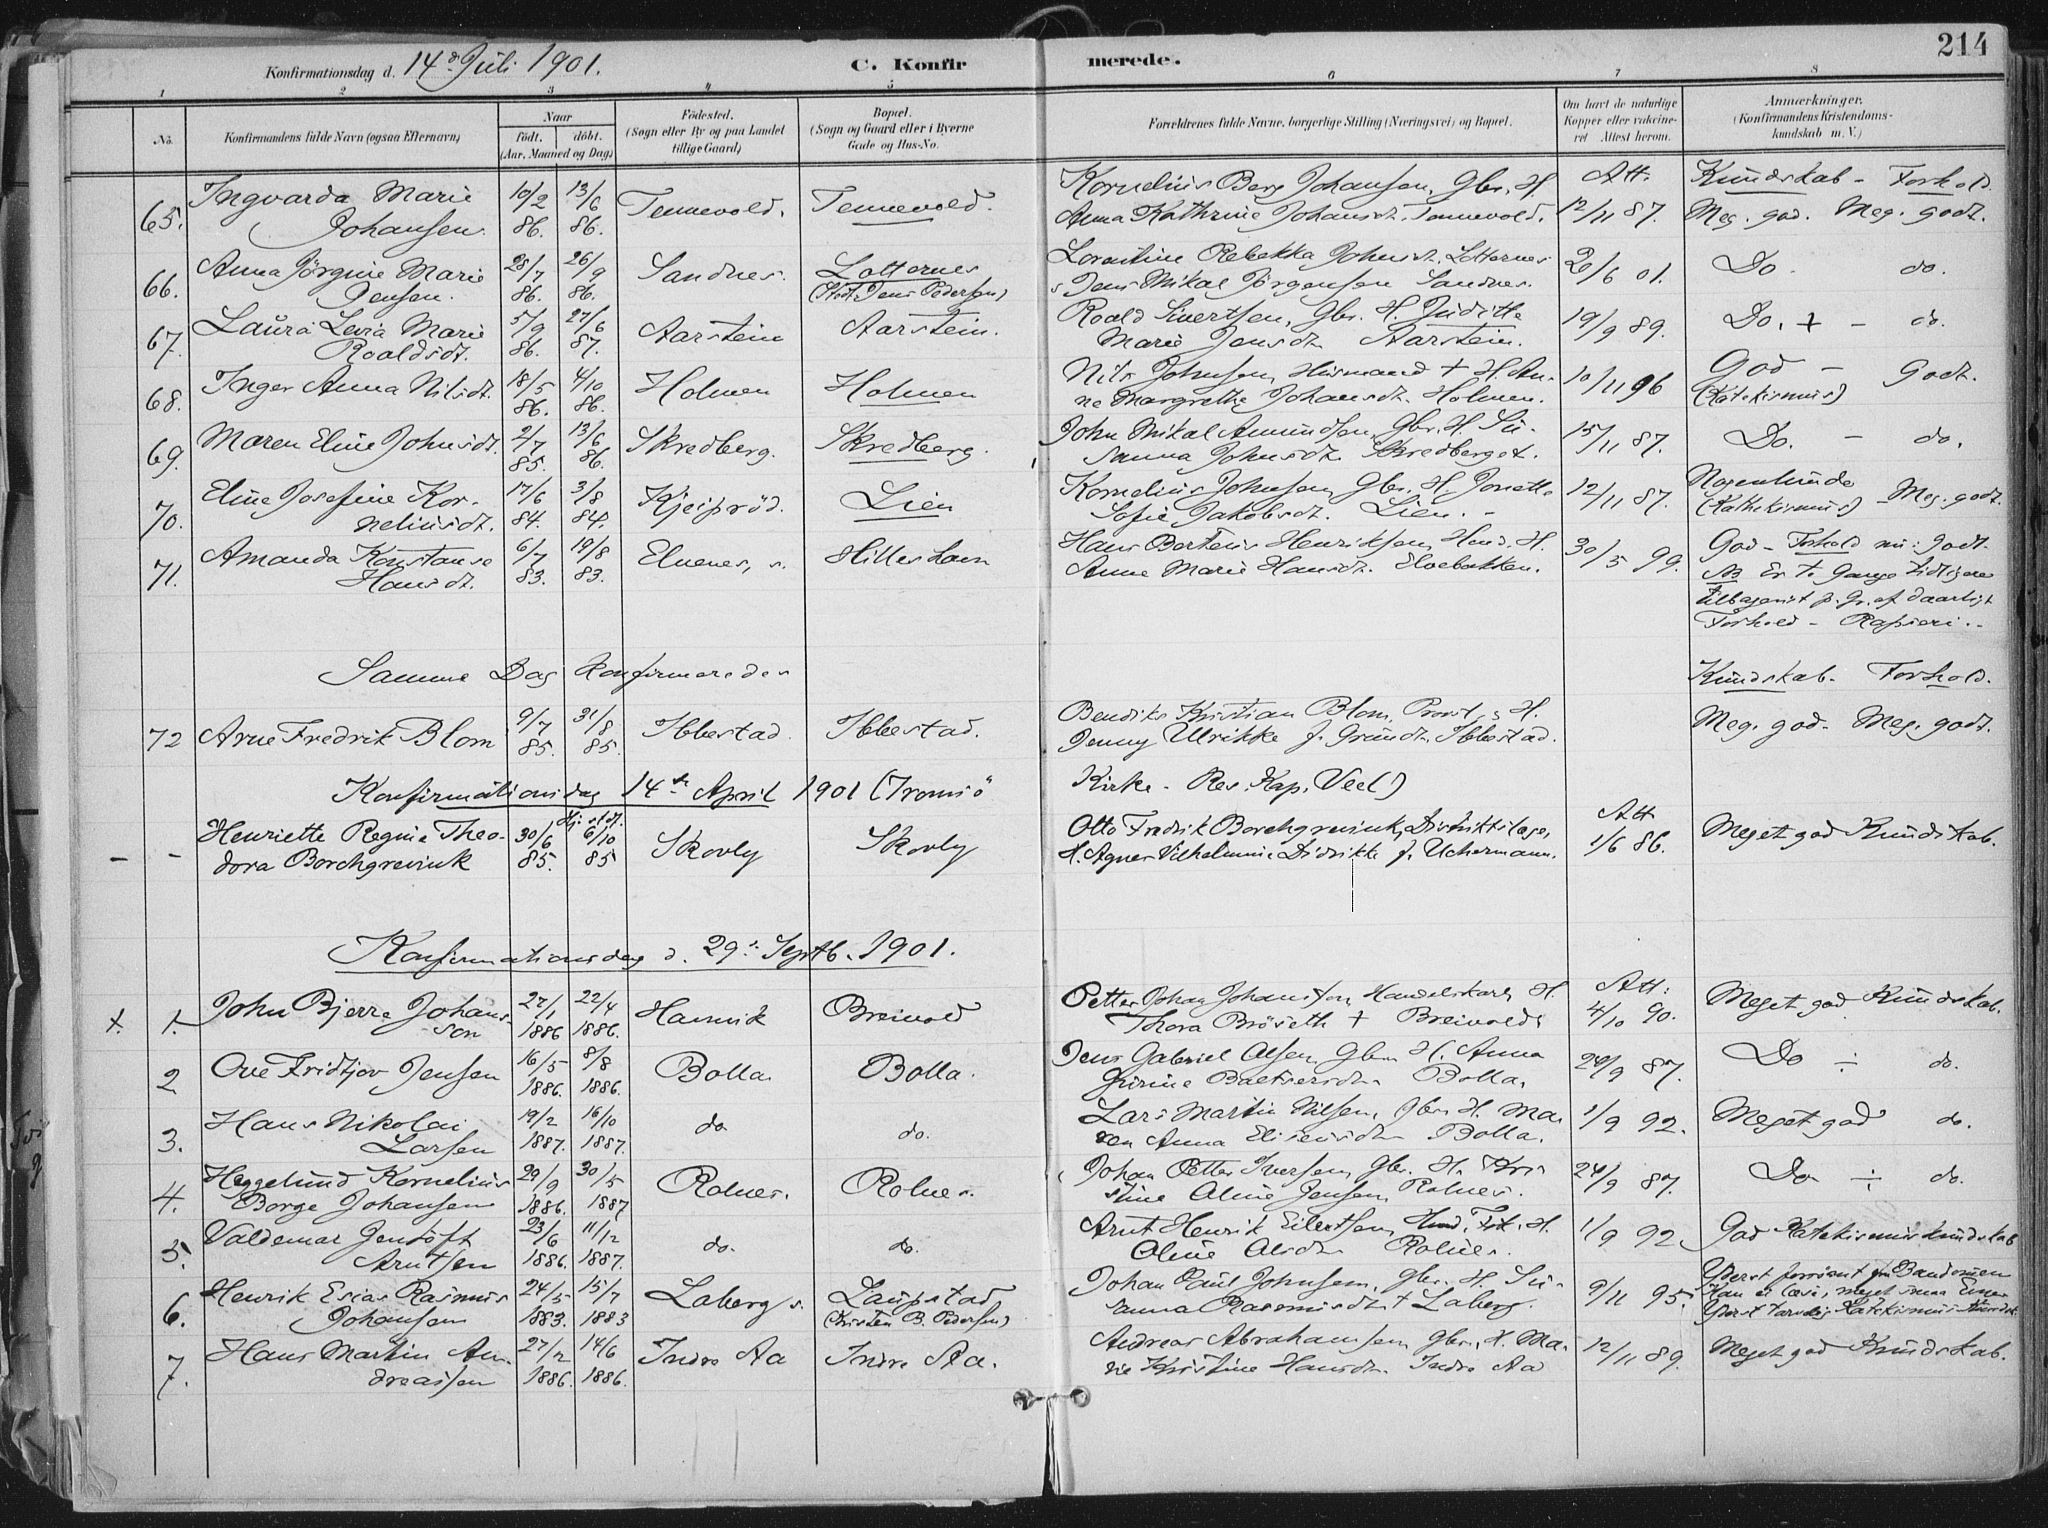 Konfirmationsdag d. 14de Juli 1901. C. Konfirmerede. 214
1 2 3 4 5 6 7 8
No. Konfirmandens fulde Navn (ogsaa Efternavn) Naar født. døbt. (Aar, Maaned og Dag) Fødested. (Sogn eller By og paa Landet tillige Gaard) Bopæl. (Sogn og Gaard eller i Byerne Gade og Hus-No. Forældrenes fulde Navne, borgerlige Stilling (Næringsvei) og Bopæl. Om havt de naturlige Kopper eller vakcineret Attest herom. Anmærkninger. (Konfirmandens Kristendomskundskab m. V.)
Ingvarda Marie 10/2 13/6 Tennevold. Tennevold. Kornelius Berg Johansen, Gbr. H. Att. Kundskab - Forhold.
65. Johansen. 86. 86. Anna Kathrine Johansdt. Tennevold. 12/11 87. Meg. god. Meg. godt.
Anna Jørgine Marie 28/7 26/9 Sandnes. Lotternes Lorentine Rebekka Johnsdt. Lotternes 20/6 01. Do. do.
66. Jensen. 86. 86. (Jens Pedersen) Jens Mikal Jørgensen Sandnes.
Laura Levia Marie 5/9 27/6 Aarstein Aarstein. Roald Sivertsen, Gbr. H. Juditte 19/9 89. Do. + - do.
67. Roaldsdt. 86. 87. Marie Jensdt. Aarstein.
68. Inger Anna Nilsdt. 18/5 4/10 Holmen Holmen Nils Johnsen, Husmand + H. An- 10/11 96 God - Godt.
86. 86. ne Margrethe Johansdt. Holmen. (Katekismus)
69. Maren Eline Johnsdt. 2/7 13/6 Skredberg. Skredberg. John Mikal Amundsen, Gbr. H. Su- 15/11 87. Do. - do.
85. 86. sanna Johnsdt. Skredberget.
Eline Josefine Kor- 17/6 3/8 Kjeiprød. Lien Kornelius Johnsen Gbr. H. Jonette 12/11 87. Nogenlunde
70. neliusdt. 84. 84. Sofie Jakobsdt. Lien. - (Kathekismus) - Meg. godt.
Amanda Konstanse 6/7 19/8 Elvenes, s. Hilleshavn Hans Berteus Henriksen, Hmd. H. 30/5 99. God - Forhold nu: godt.
71. Hansdt. 83. 83. Anne Marie Hansdt. Elvebakken. NB Er to Gange tidligere
tilbagevist p. Gr. af daarligt
Forhold -
Samme Dag konfirmeredes Kundskab - Forhold.
72 Arne Fredrik Blom 9/7 31/8 Ibbestad. Ibbestad. Bendiks Kristian Blom, Provst, s H. Meg. god - Meg. godt.
85. 85. Jenny Ulrikke f. Grundt, Ibbestad.
Konfirmationsdag 14de April 1901 (Tromsø Kirke - Res. Kap. Veel)
Hj. st. dt. Att
Henriette Regine Theo- 30/6 6/10 Skovly Skovly Otto Fredrik Borchgrevink, Distriktslæge, 1/6 86. Meget god Kundskab.
- - dora Borchgrevink 85. 85 H. Agnes Vilhelmine Didrikke f. Uchermann.
Konfirmationsdag d. 29de Septb. 1901.
x. 1. John Bjerre Johans- 27/1 22/4 Havnvik Breivold Petter Johan Johansson, Handelskarl, H. Att: Meget god Kundskab.
son 1886 1886. Thora Brøseth + Breivold 4/10 90.
2 Ove Fridtjov Jensen 16/5 8/8 Bolla. Bolla. Jens Gabriel Olsen, Gbr. H. Anna 24/9 87. Do ÷ do.
1886. 1886. Baltsersdtr. Bolla.
Hans Nikolai 19/2 16/10 do do. Lars Martin Nilsen, Gbr. H. Ma- 1/9 92. Meget god do.
3. Larsen 1887. 1887. ren Anna Eliseusdtr Bolla.
Heggelund Kornelius 29/9 30/5 Rolnes. Rolnes. Johan Petter Iversen, Gbr. H. Kri- 24/9 87. Do ÷ do.
4. Borge Johansen 1886. 1887 stine Oline Jensen, Rolnes.
Valdemar Jentoft 23/6 11/12 do. do. Arnt Henrik Eilertsen, Hmd. Fisk. H. 1/9 92. God Katekismuskundskab
5. Arntsen 1886. 1887. Oline Olsdtr Rolnes.
Henrik Esias Rasmus 24/5 15/7 Laberg s. Laupstad Johan Paul Johnsen, Gbr. H. Su- 9/11 95. Yderst forsømt fra Barndommen
6. Johansen 1883. 1883 (Kristen B. Pedersen) sanna Rasmusdt. + Laberg. Kan ei læse, meget
Yderst tarvelig Katekismuskundsk.
Hans Martin An- 27/2 14/6 Indre Aa Indre Aa. Andreas Abrahamsen, Gbr. H. Ma- 12/11 89. Meget god Kundskab.
7. dreassen 1886. 1886. rie Kristine Hansdtr. Indre Aa